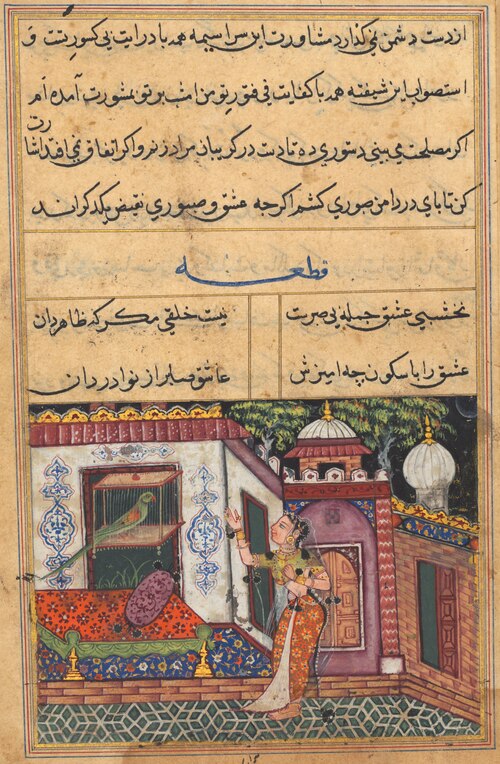 از دست دشمن نمی‌گذارد مشاورت این سراسیمه همه با درایت بی کسور تست و
استصواب این شیفته همه با کفایت بی فتور تو من امشب بر تو بمشورت آمده‌ام
اگر مصلحت می بینی دستوری ده تا دست در کریبان مراد زنم و اکر اتفاق نمی افتد اشارت
کن تا پای در دامن صبوری کشم اکر چه عشق و صبوری نقیض یکدیکراند
قطعه
نخشبی عشق جمله بی صبریست
نیست خلقی مکر که ظاهر دان
عشق را با سکون چه آمیزش
عاشق صابر از نوادر دان